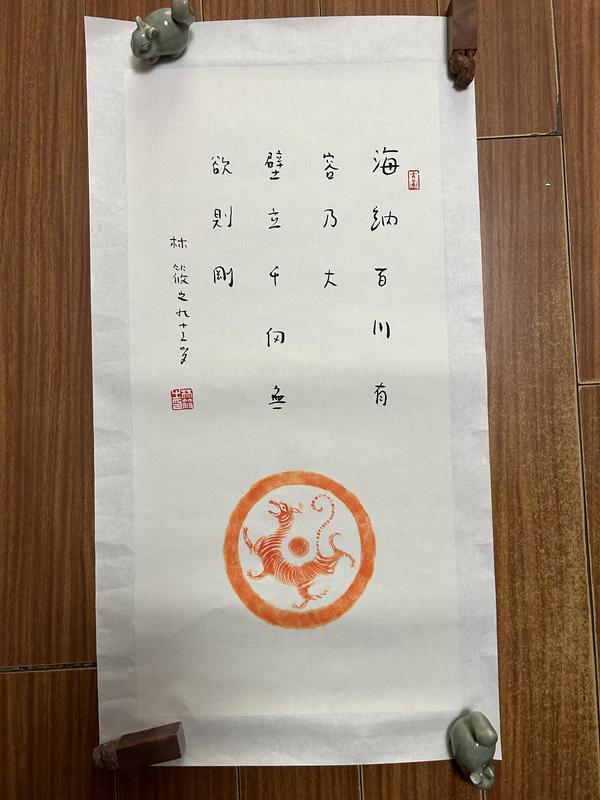 海納百川有
容乃大
壁立千仞無
欲則剛
林筱之九十三岁